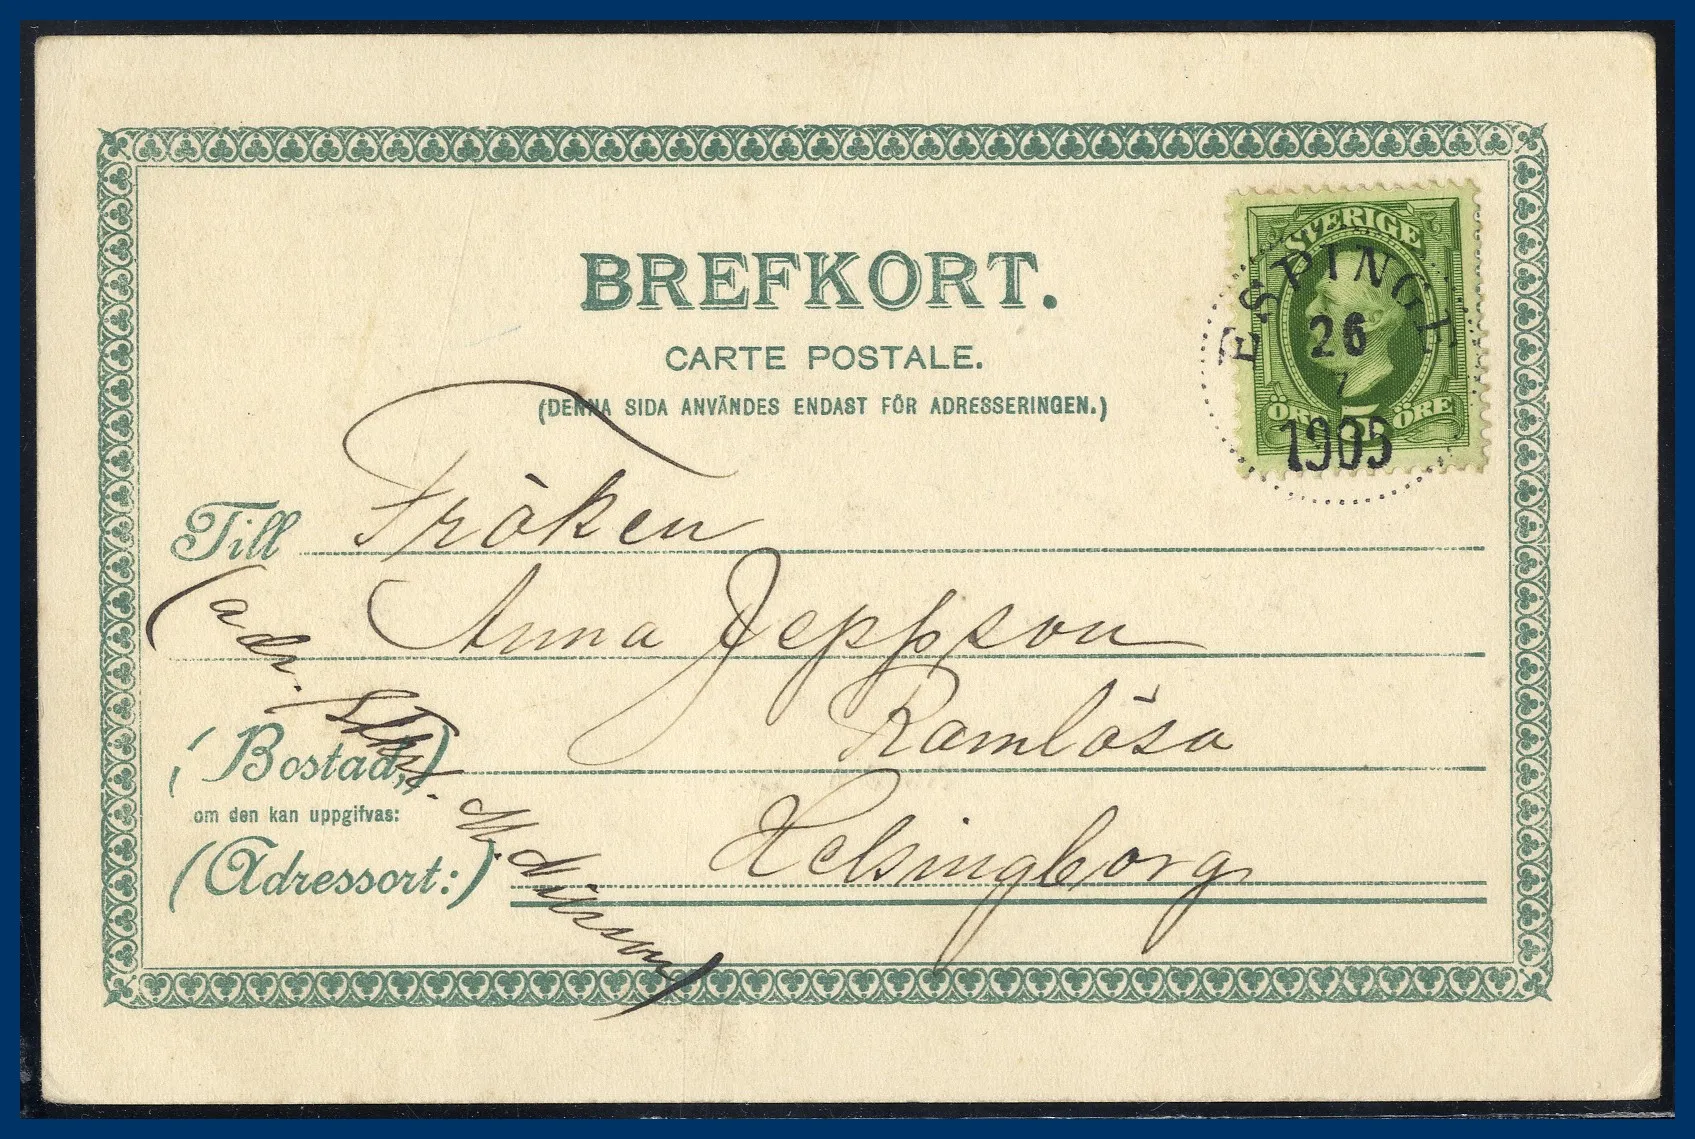 BREFKORT.
CARTE POSTALE.
(DENNA SIDA ANVÄNDES ENDAST FÖR ADRESSERINGEN.)
SVERIGE
ESPINGE
26
7
1905
ÖRE 5 ÖRE
Till Fröken
Anna Jeppson
Ramlösa
(Bostad,)
om den kan uppgifvas:
Helsingborg
(Adressort:)
(adr. M. Nilsson)